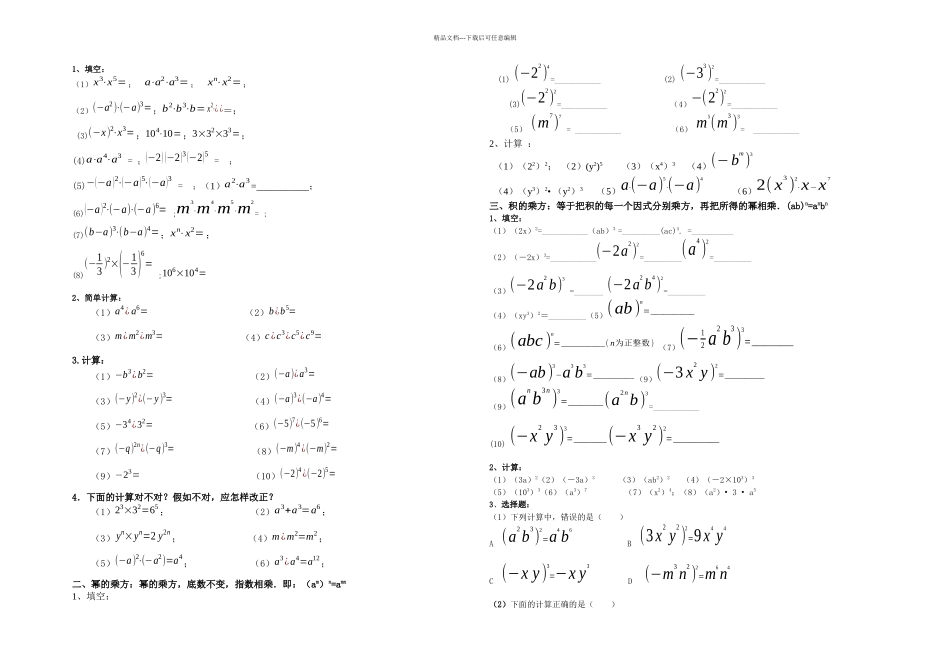 精品文档---下载后可任意编辑
1、填空：
（1）x³·x⁵=； a·a²·a³=； xⁿ·x²=；
（2）(−a²)·(−a)³=；b²·b³·b=x²¿¿=；
(3)(−x)²·x³=；10⁴·10=；3×3²×3³=；
(4)a·a⁴·a³ = ；|−2||−2|³|−2|⁵ = ；
(5)−(−a)²·(−a)⁵·(−a)³ = ；（1）a²·a³=__________；
⑹(−a)²·(−a)·(−a)⁶= ；m³·m⁴·m⁵·m²= ；
⑺(b−a)³·(b−a)⁴=；xⁿ·x²=；
⑻(−1/3)²×(−1/3)⁶= ；10⁶×10⁴=
2、简单计算：
（1）a⁴¿a⁶= （2）b¿b⁵=
（3）m¿m²¿m³= （4）c¿c³¿c⁵¿c⁹=
3.计算：
（1）−b³¿b²= （2）(−a)¿a³=
（3）(−y)²¿(−y)³= （4）(−a)³¿(−a)⁴=
（5）−3⁴¿3²= （6）(−5)⁷¿(−5)⁶=
（7）(−q)²ⁿ¿(−q)³= （8）(−m)⁴¿(−m)²=
（9）−2³= （10）(−2)⁴¿(−2)⁵=
4．下面的计算对不对？假如不对，应怎样改正？
（1）2³×3²=6⁵； （2）a³+a³=a⁶；
（3）yⁿ×yⁿ=2y²ⁿ； （4）m¿m²=m²；
（5）(−a)²·(−a²)=a⁴； （6）a³¿a⁴=a¹²；
二、幂的乘方：幂的乘方，底数不变，指数相乘．即：（aᵐ）ⁿ=aᵐⁿ
1、填空：
(1) (−2²)⁴=__________ (2) (−3³)²=__________
(3)(−2²)²=__________ （4）−(2²)²=__________
（5） (m⁷)⁷ = __________ （6） m³(m³)³= __________
2、计算 ：
（1）（2²）²； （2）(y²)⁵ （3）（x⁴）³ （4）(−bᵐ)³
（4）（y³）²•（y²）³ （5）a·(−a)⁵·(−a)⁴ （6）2(x³)²·x−x⁷
三、积的乘方：等于把积的每一个因式分别乘方，再把所得的幂相乘．(ab)ⁿ=aⁿbⁿ
1、填空：
（2）（−2x）³=__________(−2a²)²=________(a⁴)²=________
（3）(−2a²b)³ =______ (−2a²b⁴)²=________
（4）（xy³）²＝________（5）(ab)ⁿ=________
（6）(abc)ⁿ=________(n为正整数) （7）(−1/2a²b³)³=________
（8）(−ab)³−a³b³=________（9）(−3x²y)²=________
（9）(aⁿb³ⁿ)³=_______(a²ⁿb)³=__________
(10) (−x²y³)³=_______(−x³y²)²=_________
2、计算：
（1）（3a）²（2）（−3a）³ （3）（ab²）² （4）（−2×10³）³
（5）（10³）³（6）（a³）⁷ （7）（x²）⁴；（8）（a²）• 3 • a⁵
3、选择题：
（1）下列计算中，错误的是（ ）
A (a²b³)²=a⁴b⁶ B (3x²y²)²=9x⁴y⁴
C (−xy)³=−xy³ D (−m³n²)²=m⁶n⁴
（2）下面的计算正确的是（ ）